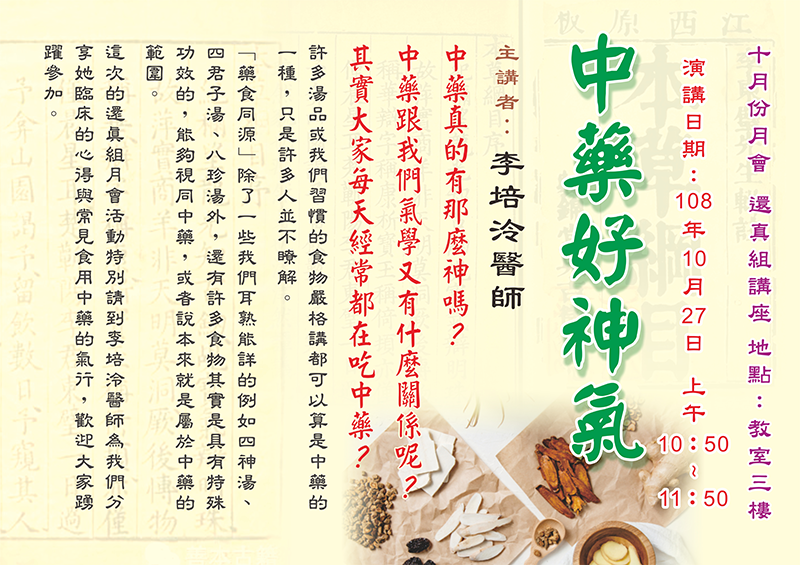 十月份月會 還真組講座 地點：教室三樓
演講日期：108年10月27日 上午10：50～11：50
中藥好神氣
主講者：李培泠醫師
中藥真的有那麼神嗎？
中藥跟我們氣學又有什麼關係呢？
其實大家每天經常都在吃中藥？
許多湯品或我們習慣的食物嚴格講都可以算是中藥的
一種，只是許多人並不瞭解。
「藥食同源」除了一些我們耳熟能詳的例如四神湯、
四君子湯、八珍湯外，還有許多食物其實是具有特殊
功效的，能夠視同中藥，或者說本來就是屬於中藥的
範圍。
這次的還真組月會活動特別請到李培泠醫師為我們分
享她臨床的心得與常見食用中藥的氣行，歡迎大家踴
躍參加。
江西原板
本草綱目